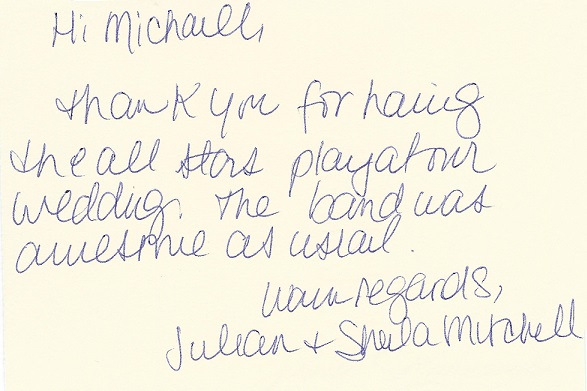 Hi Michaell,
thank you for having
the all stars play at our
wedding. The band was
awesome as usual.
warm regards,
Julian + Sheila Mitchell